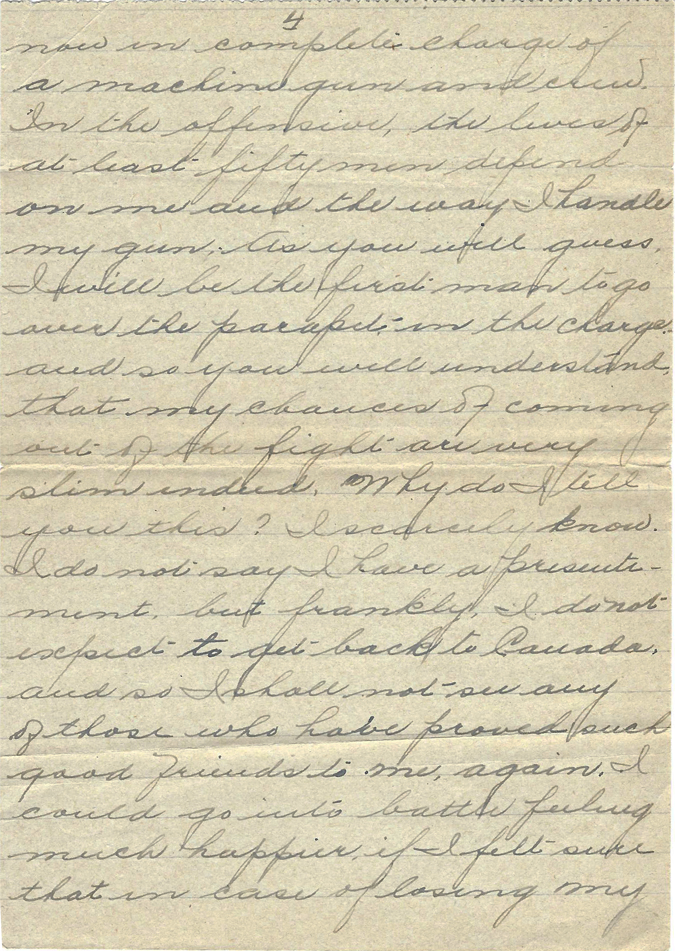 4
now in complete charge of
a machine gun and crew.
In the offensive, the lives of
at least fifty men depend
on me and the way I handle
my gun. As you will guess,
I will be the first man to go
over the parapet in the charge.
and so you will understand,
that my chances of coming
out of the fight are very
slim indeed. Why do I tell
you this? I scarcely know.
I do not say I have a presenti-
ment, but frankly, I do not
expect to get back to Canada,
and so I shall not see any
of those who have proved such
good friends to me, again. I
could go into battle feeling
much happier if I felt sure
that in case of losing my